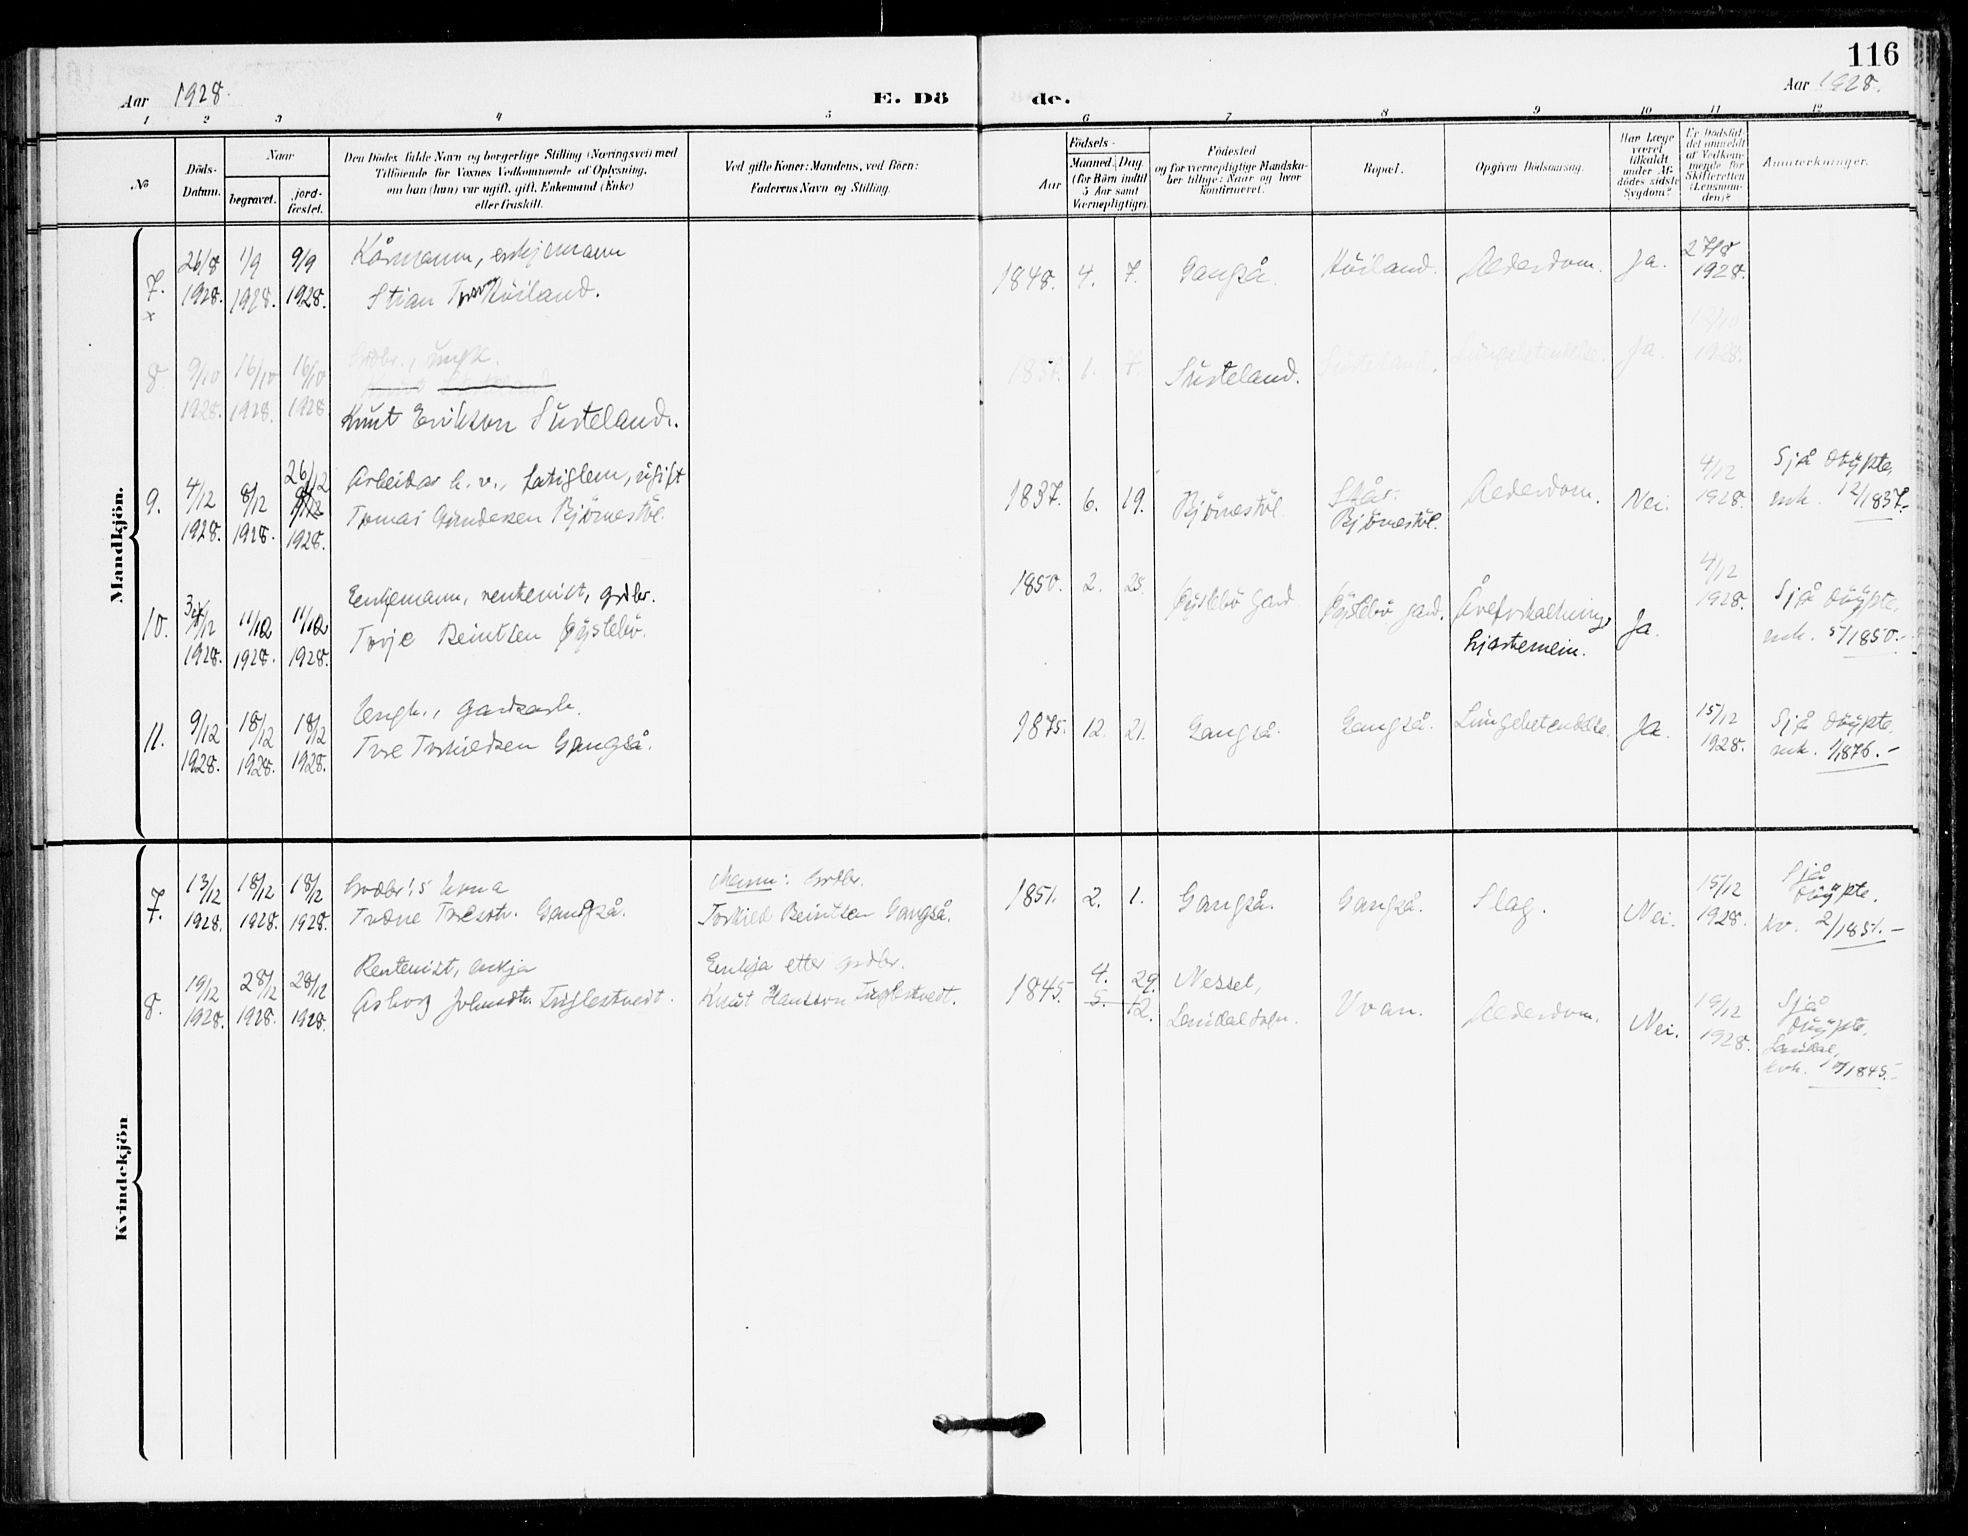 116
Aar 1928.
E. Dö
de.
Aar 1928.
1 2 3 4 5 6 7 8 9 10 11 12
No
Döds-
Datum.
Naar
begravet.
jord-
fæstet.
Den Dödes fulde Navn og borgerlige Stilling (Næringsvei) med
Tilföiende for Voxnes Vedkommende af Oplysning,
om han (hun) var ugift, gift, Enkemand (Enke)
eller fraskilt.
Ved gifte Koner: Mandens, ved Börn:
Faderens Navn og Stilling.
Födsels-
Aar
Maaned. Dag.
(for Börn indtil
5 Aar samt
Værnepligtige).
Födested
og for værnepligtige Mandska-
ber tillige: Naar og hvor
konfirmeret.
Bopæl.
Opgiven Dödsaarsag.
Har Læge
været
tilkaldt
under Af-
dödes sidste
Sygdom?
Er Dödsfal-
det anmeldt
af Vedkom-
mende for
Skifteretten
(Lensman-
den)?
Anmærkninger.
Mandkjön.
7. 26/8 1/9 9/9 Kårmann, enkjemann
x 1928. 1928. 1928. Stian Høiland.
1848. 4. 7. Gangså. Høiland. Alderdom. Ja. 27/8 1928.
8. 9/10 16/10 16/10 Grdbr., ungk.
1928. 1928. 1928.
Knut Erikson Susteland.
1. 7. Susteland. Susteland. Lungebetendelse. Ja. 12/10 1928.
9. 4/12 8/12 26/12 Arbeidar ugift
1928. 1928. 1928. Tomas Gundersen Bjørnestøl.
1837. 6. 19. Bjørnestøl. Bjørnestøl. Alderdom. Nei. 4/12 1928. Sjå døypte,
mk. 12/1837.-
10. 11/12 11/12 Enkjemann, rentenist, grdbr.
1928. 1928. 1928. Torje Beintsen Øyslebø.
1850. 2. 25. Øyslebø gard Øyslebø gard. Åreforkalkning, Ja. 4/12 1928. Sjå døypte,
hjartemein. mk. 5/1850.-
11. 9/12 18/12 18/12 Ungk., gardsarb.
1928. 1928. 1928. Tore Torkildsen Gangså.
1875. 12. 21. Gangså. Gangså. Lungebetendelse. Ja. 15/12 1928. Sjå døypte,
mk. 1/1876.-
Kvindekjön
7. 13/12 18/12 18/12 Grdbr!s kona Mann: Grdbr.
1928. 1928. 1928. Torine Toresdtr. Gangså. Torkild Beintsen Gangså.
1851. 2. 1. Gangså. Gangså. Slag. Nei. 15/12 1928. Sjå
døypte,
kv. 2/1851.-
8. 19/12 28/12 28/12 Rentenist, enkja Enkja etter grdbr.
1928. 1928. 1928. Asborg Johnsdtr. Tuglestvedt. Knut Hansson Tuglestvedt.
1845. 4. 29. Nessel,
5. 12. Laudal sogn. Uvan. Alderdom. Nei. 19/12 1928. Sjå
døypte,
Laudal,
kvk. /1845.-